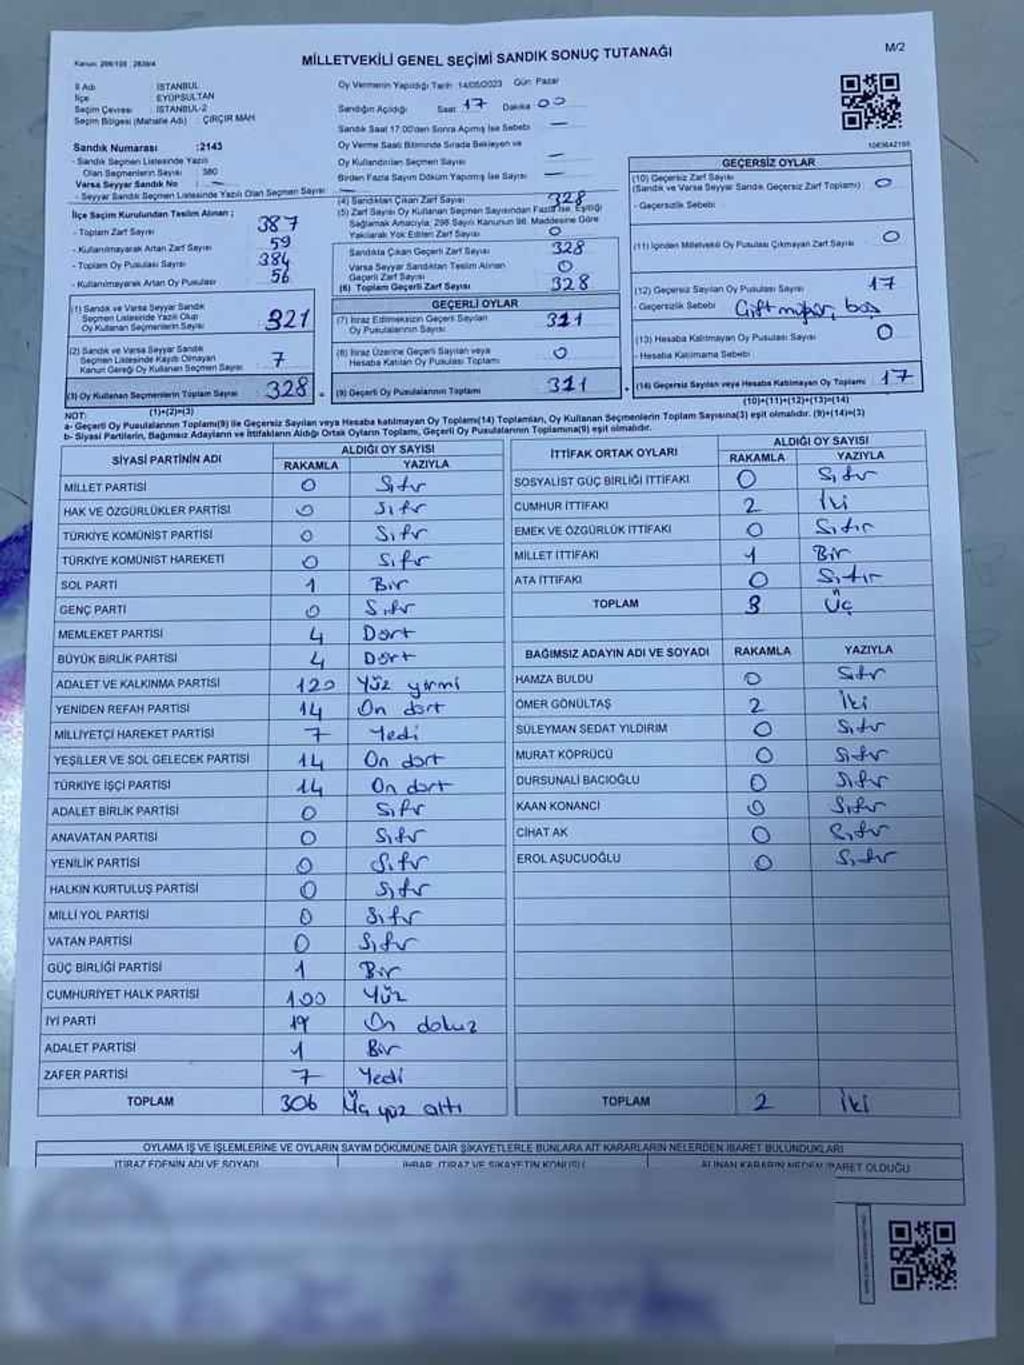 MİLLETVEKİLİ GENEL SEÇİMİ SANDIK SONUÇ TUTANAĞI
M/2
İl Adı : İSTANBUL
İlçe : EYÜPSULTAN
Seçim Çevresi : İSTANBUL-2
Seçim Bölgesi (Mahalle Adı) : ÇIRÇIR MAH
Sandık Numarası :2143
- Sandık Seçmen Listesinde Yazılı
Olan Seçmenlerin Sayısı : 380
Varsa Seyyar Sandık No : —
- Seyyar Sandık Seçmen Listesinde Yazılı Olan Seçmen Sayısı : —
Oy Vermenin Yapıldığı Tarih 14/05/2023 Gün Pazar
Sandığın Açıldığı Saat 17 Dakika 00
Sandık Saat 17:00'den Sonra Açılmış İse Sebebi —
Oy Verme Saati Bitiminde Sırada Bekleyen ve
Oy Kullandırılan Seçmen Sayısı —
Birden Fazla Sayım Döküm Yapılmış İse Sayısı —
İlçe Seçim Kurulundan Teslim Alınan ;
- Toplam Zarf Sayısı 387
- Kullanılmayarak Artan Zarf Sayısı 59
- Toplam Oy Pusulası Sayısı 384
- Kullanılmayarak Artan Oy Pusulası 56
(1) Sandık ve Varsa Seyyar Sandık
Seçmen Listesinde Yazılı Olup
Oy Kullanan Seçmenlerin Sayısı 321
(2) Sandık ve Varsa Seyyar Sandık
Seçmen Listesinde Kayıtlı Olmayan
Kanun Gereği Oy Kullanan Seçmen Sayısı 7
(3) Oy Kullanan Seçmenlerin Toplam Sayısı 328
(1)+(2)=(3)
(4) Sandıktan Çıkan Zarf Sayısı 328
(5) Zarf Sayısı Oy Kullanan Seçmen Sayısından Fazla İse, Eşitliği
Sağlamak Amacıyla; 298 Sayılı Kanunun 98. Maddesine Göre
Yakılarak Yok Edilen Zarf Sayısı 0
Sandıkta Çıkan Geçerli Zarf Sayısı 328
Varsa Seyyar Sandıktan Teslim Alınan
Geçerli Zarf Sayısı 0
(6) Toplam Geçerli Zarf Sayısı 328
GEÇERLİ OYLAR
(7) İtiraz Edilmeksizin Geçerli Sayılan
Oy Pusulalarının Sayısı 311
(8) İtiraz Üzerine Geçerli Sayılan veya
Hesaba Katılan Oy Pusulası Toplamı 0
(9) Geçerli Oy Pusulalarının Toplamı 311
1083642198
GEÇERSİZ OYLAR
(10) Geçersiz Zarf Sayısı
(Sandık ve Varsa Seyyar Sandık Geçersiz Zarf Toplamı) 0
- Geçersizlik Sebebi :
(11) İçinden Milletvekili Oy Pusulası Çıkmayan Zarf Sayısı 0
(12) Geçersiz Sayılan Oy Pusulası Sayısı 17
- Geçersizlik Sebebi : Çift mühür, boş
(13) Hesaba Katılmayan Oy Pusulası Sayısı 0
- Hesaba Katılmama Sebebi :
(14) Geçersiz Sayılan veya Hesaba Katılmayan Oy Toplamı 17
(10)+(11)+(12)+(13)=(14)
NOT:
a- Geçerli Oy Pusulalarının Toplamı(9) ile Geçersiz Sayılan veya Hesaba katılmayan Oy Toplamı(14) Toplamları, Oy Kullanan Seçmenlerin Toplam Sayısına(3) eşit olmalıdır. (9)+(14)=(3)
b- Siyasi Partilerin, Bağımsız Adayların ve İttifakların Aldığı Ortak Oyların Toplamı, Geçerli Oy Pusulalarının Toplamına(9) eşit olmalıdır.
SİYASİ PARTİNİN ADI
ALDIĞI OY SAYISI
RAKAMLA YAZIYLA
MİLLET PARTİSİ 0 Sıfır
HAK VE ÖZGÜRLÜKLER PARTİSİ 0 Sıfır
TÜRKİYE KOMÜNİST PARTİSİ 0 Sıfır
TÜRKİYE KOMÜNİST HAREKETİ 0 Sıfır
SOL PARTİ 1 Bir
GENÇ PARTİ 0 Sıfır
MEMLEKET PARTİSİ 4 Dört
BÜYÜK BİRLİK PARTİSİ 4 Dört
ADALET VE KALKINMA PARTİSİ 120 Yüz yirmi
YENİDEN REFAH PARTİSİ 14 On dört
MİLLİYETÇİ HAREKET PARTİSİ 7 Yedi
YEŞİLLER VE SOL GELECEK PARTİSİ 14 On dört
TÜRKİYE İŞÇİ PARTİSİ 14 On dört
ADALET BİRLİK PARTİSİ 0 Sıfır
ANAVATAN PARTİSİ 0 Sıfır
YENİLİK PARTİSİ 0 Sıfır
HALKIN KURTULUŞ PARTİSİ 0 Sıfır
MİLLİ YOL PARTİSİ 0 Sıfır
VATAN PARTİSİ 0 Sıfır
GÜÇ BİRLİĞİ PARTİSİ 1 Bir
CUMHURİYET HALK PARTİSİ 100 Yüz
İYİ PARTİ 19 On dokuz
ADALET PARTİSİ 1 Bir
ZAFER PARTİSİ 7 Yedi
TOPLAM 306 Üç yüz altı
İTTİFAK ORTAK OYLARI
ALDIĞI OY SAYISI
RAKAMLA YAZIYLA
SOSYALİST GÜÇ BİRLİĞİ İTTİFAKI 0 Sıfır
CUMHUR İTTİFAKI 2 İki
EMEK VE ÖZGÜRLÜK İTTİFAKI 0 Sıfır
MİLLET İTTİFAKI 1 Bir
ATA İTTİFAKI 0 Sıfır
TOPLAM 3 Üç
BAĞIMSIZ ADAYIN ADI VE SOYADI RAKAMLA YAZIYLA
HAMZA BULDU 0 Sıfır
ÖMER GÖNÜLTAŞ 2 İki
SÜLEYMAN SEDAT YILDIRIM 0 Sıfır
MURAT KÖPRÜCÜ 0 Sıfır
DURSUNALİ BACIOĞLU 0 Sıfır
KAAN KONANCI 0 Sıfır
CİHAT AK 0 Sıfır
EROL AŞUCUOĞLU 0 Sıfır
TOPLAM 2 İki
OYLAMA İŞ VE İŞLEMLERİNE VE OYLARIN SAYIM DÖKÜMÜNE DAİR ŞİKAYETLERLE BUNLARA AİT KARARLARIN NELERDEN İBARET BULUNDUKLARI
İTİRAZ EDENİN ADI VE SOYADI
İHBAR, İTİRAZ VE ŞİKAYETİN KONUSU
ALINAN KARARIN NEDEN İBARET OLDUĞU